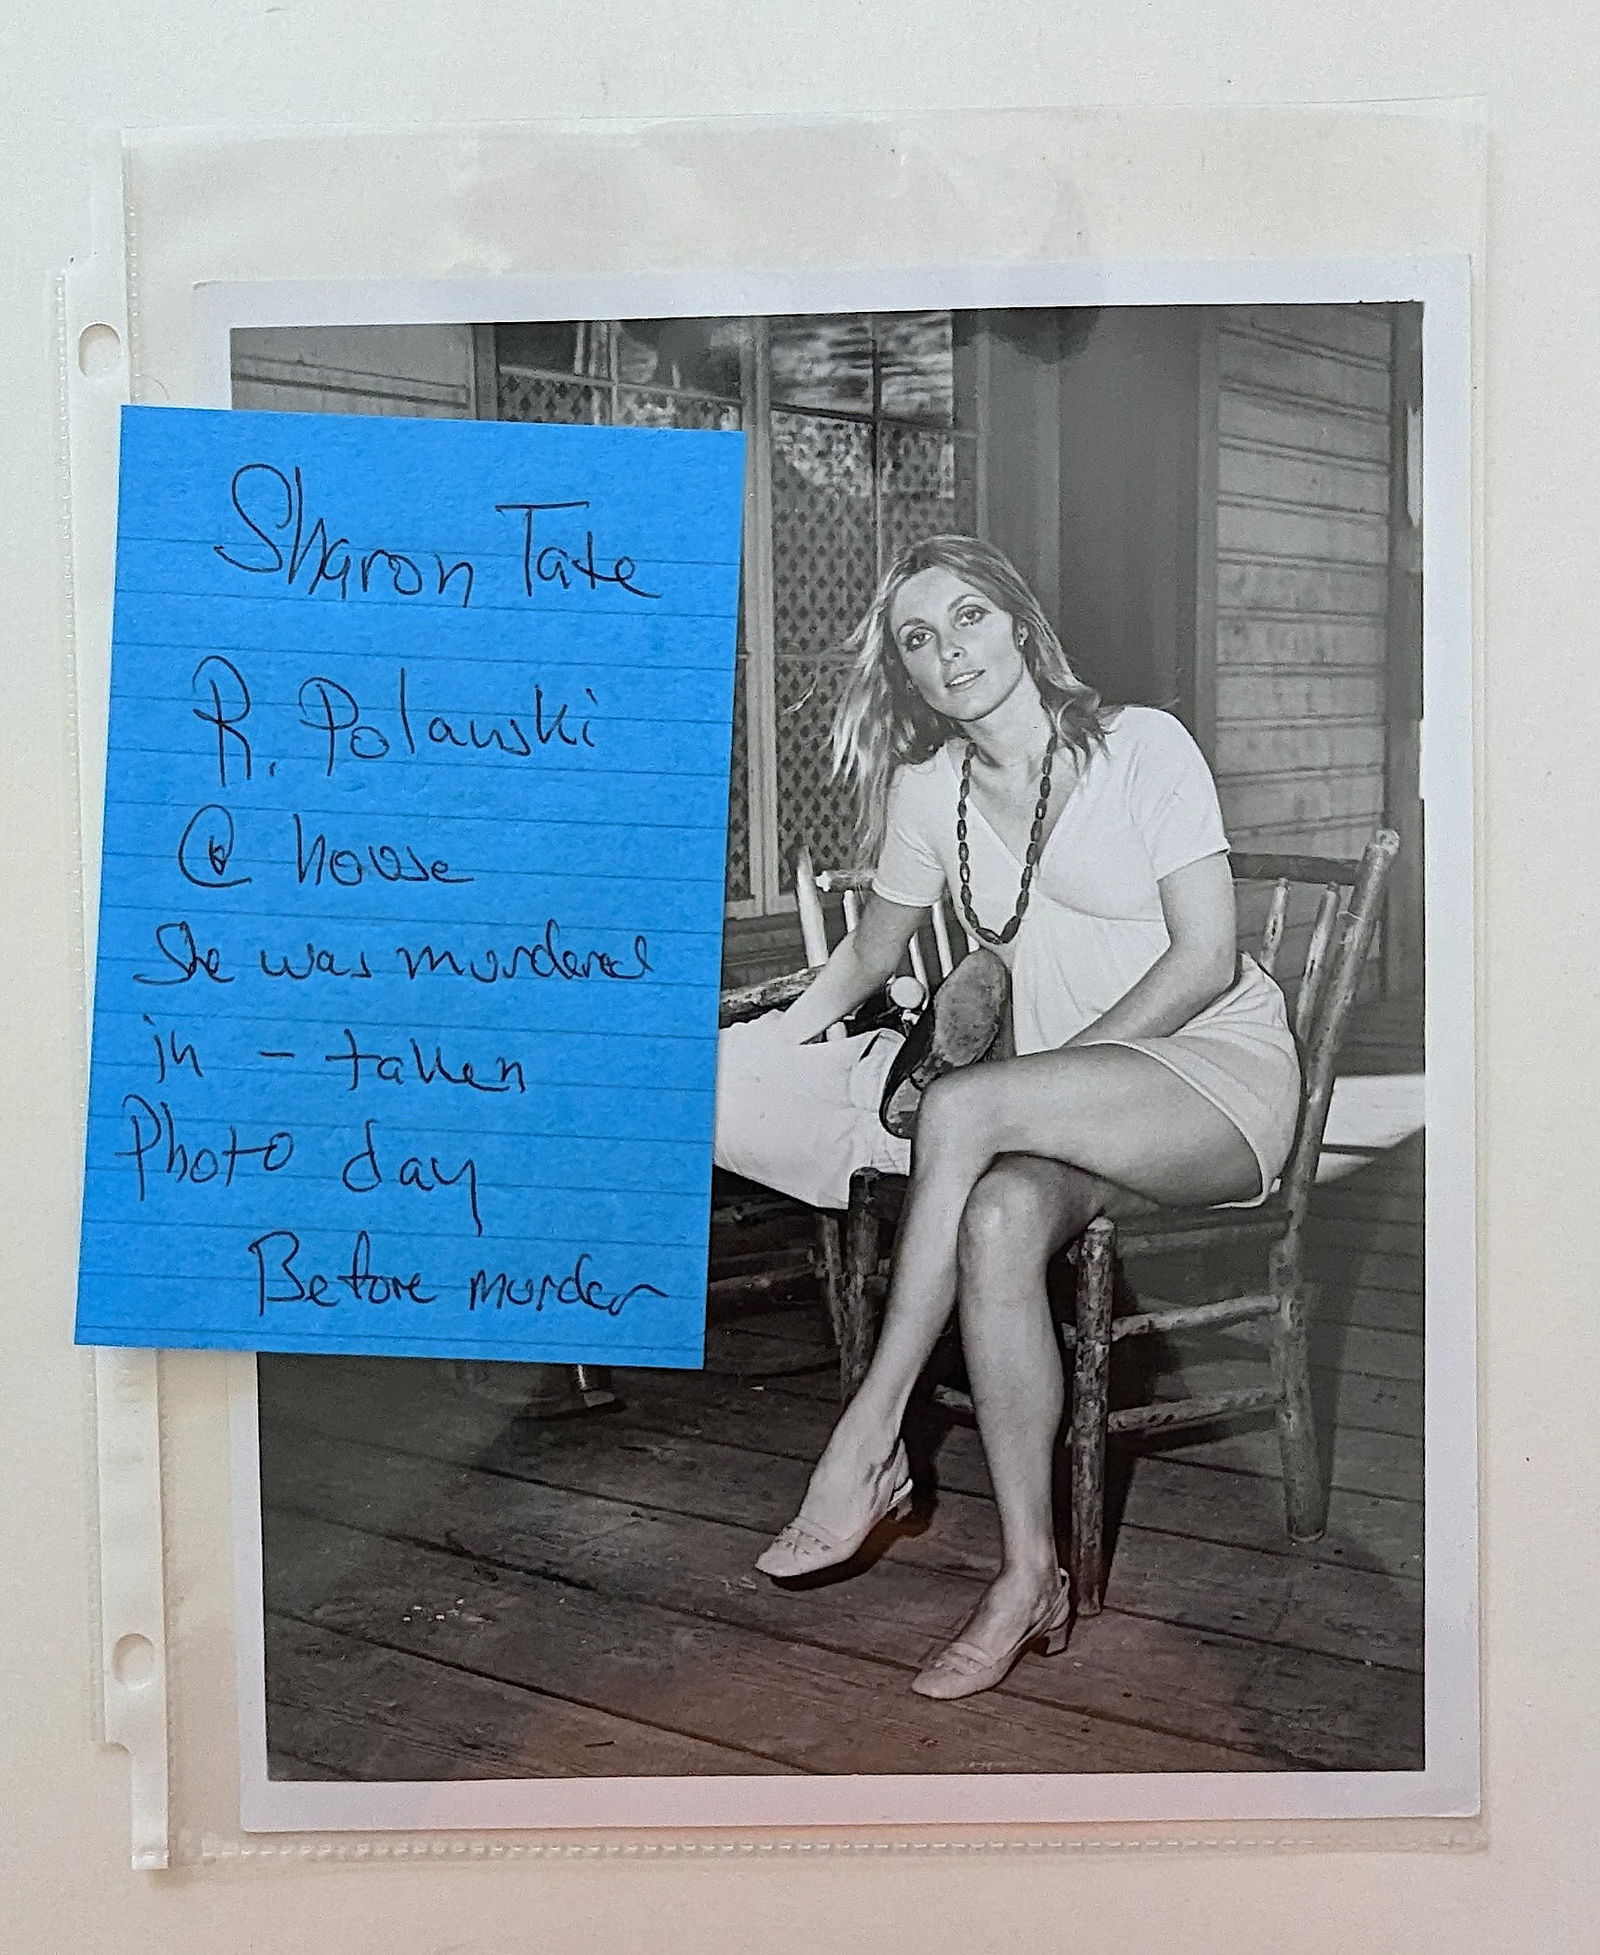 Sharon Tate
R. Polanski
@ house
She was murdered
in - taken
Photo day
Before murder